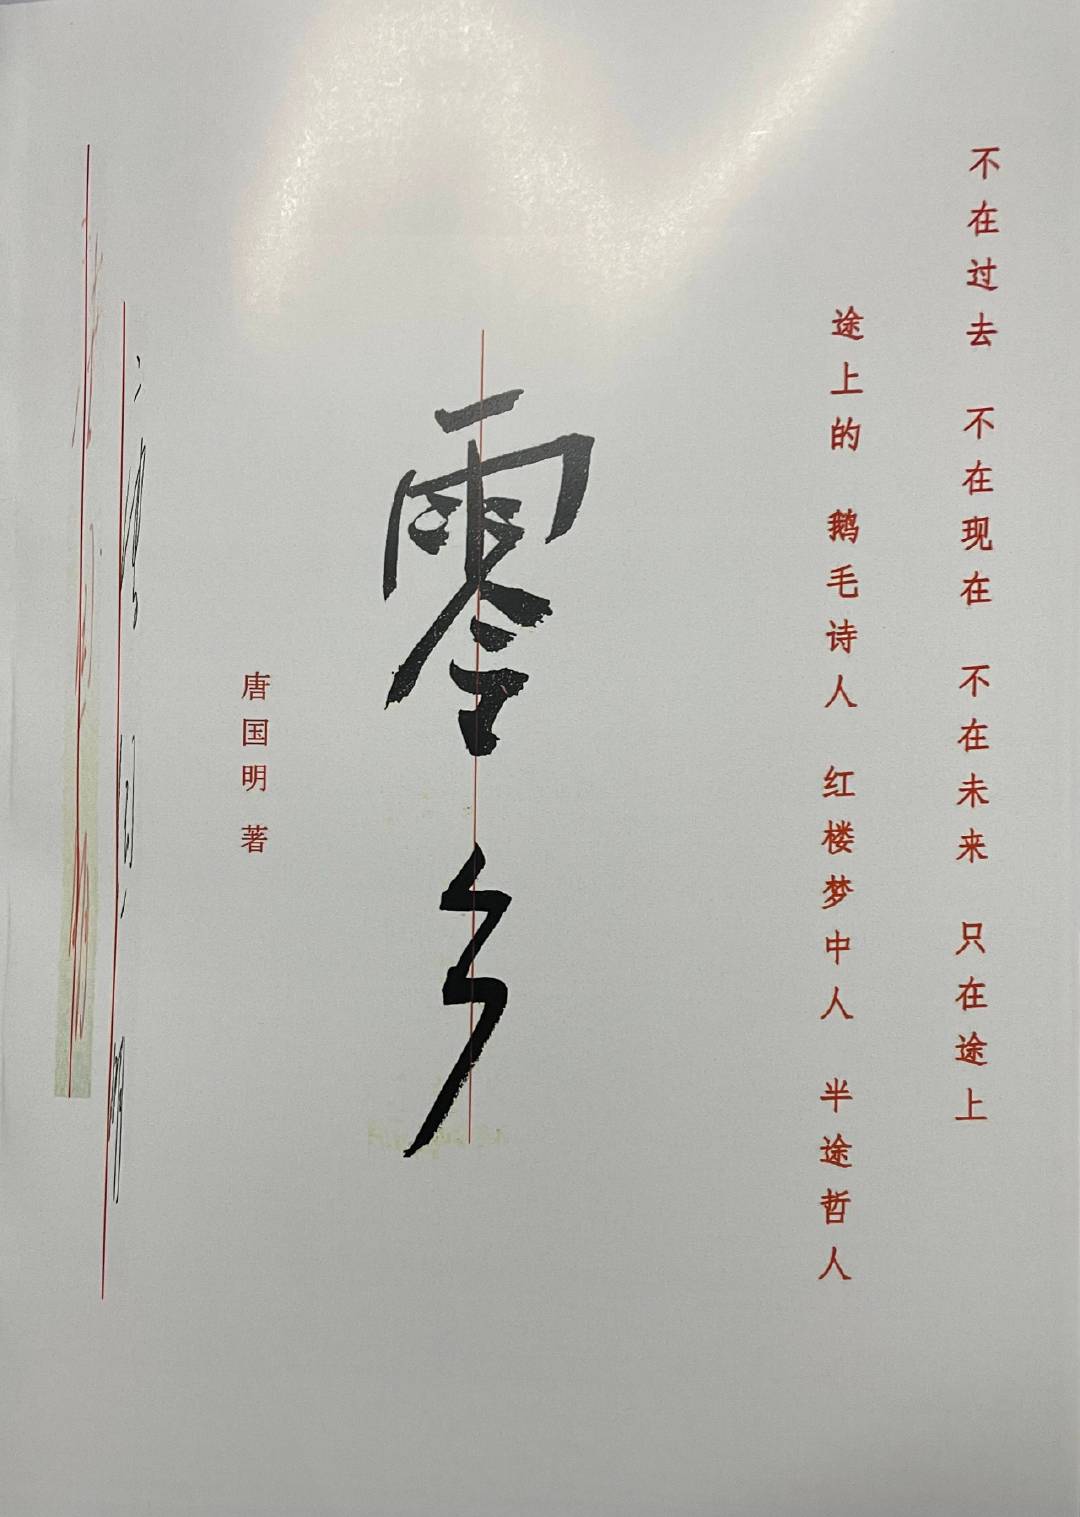 不在过去 不在现在 不在未来 只在途上
途上的 鹅毛诗人 红楼梦中人 半途哲人
零乡
唐国明 著